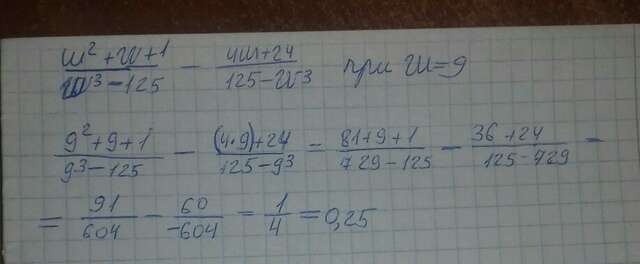 (w² + w + 1)/(w³ − 125) − (4w + 24)/(125 − w³) при w = 9
(9² + 9 + 1)/(9³ − 125) − ((4·9) + 24)/(125 − 9³) = (81 + 9 + 1)/(729 − 125) − (36 + 24)/(125 − 729) =
= 91/604 − 60/−604 = 1/4 = 0,25